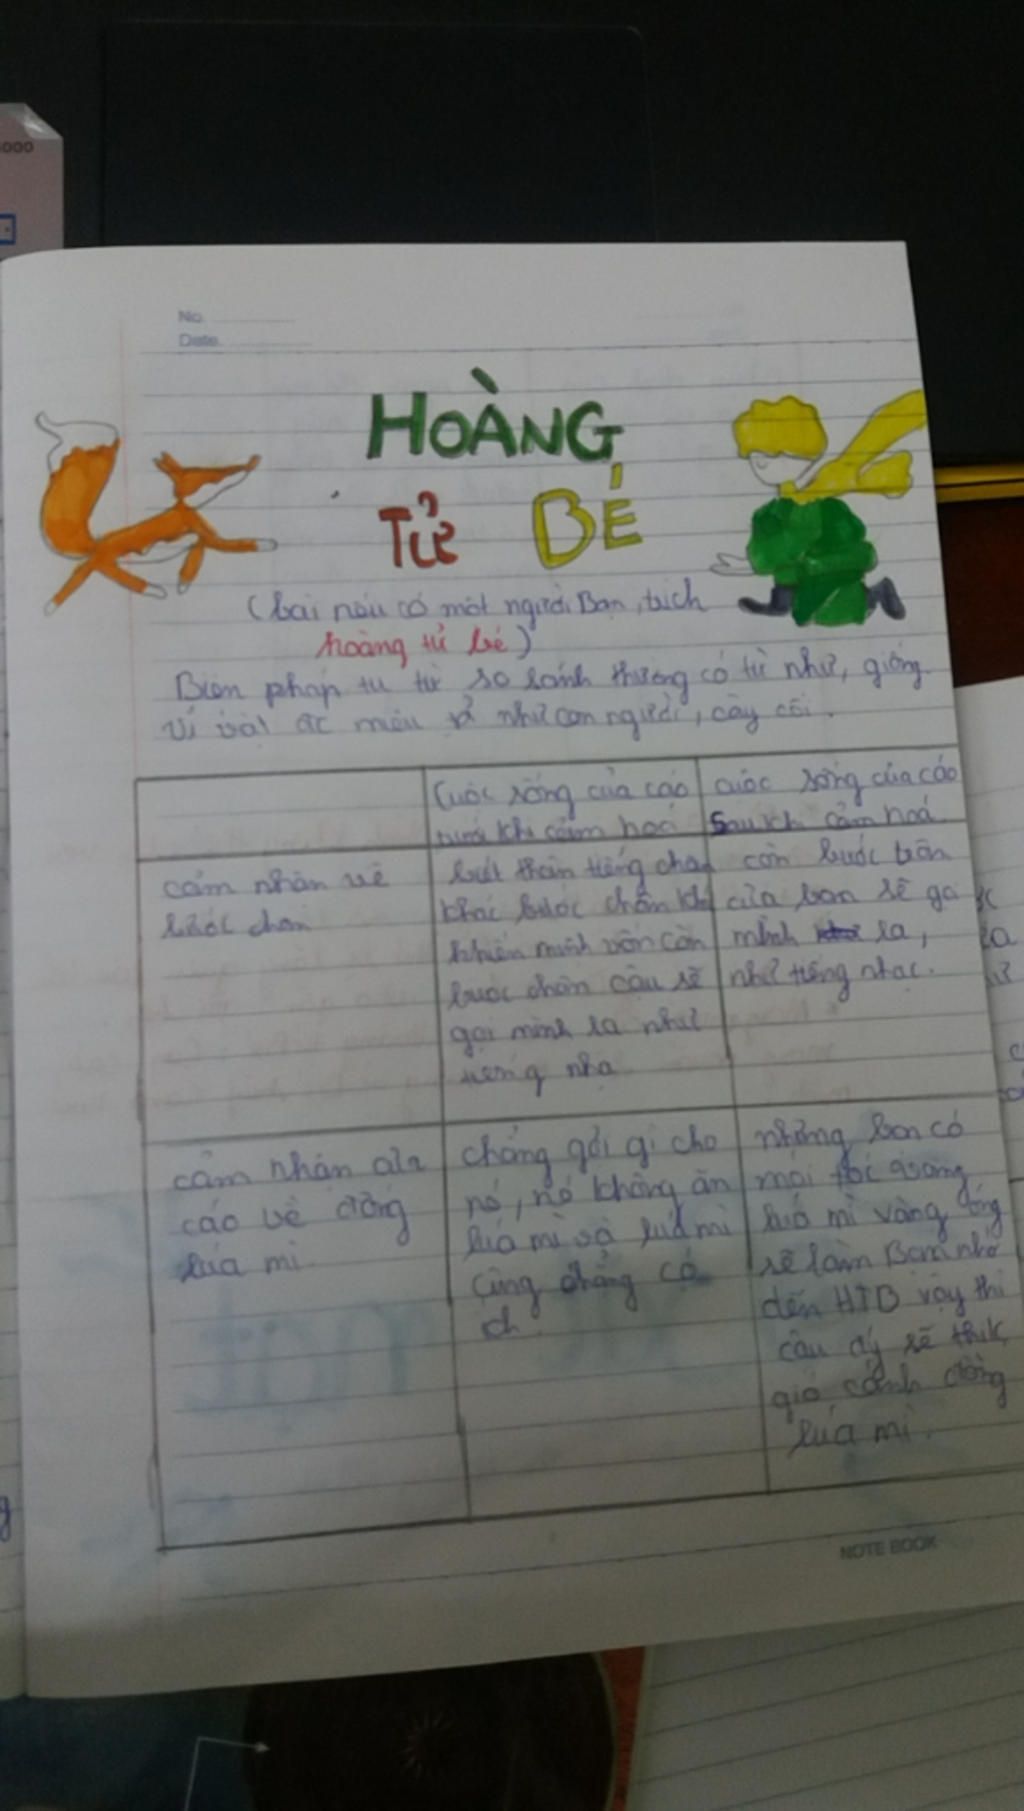 000
No.
Date.
HOÀNG
TỬ BÉ
(bài nếu có một người Bạn, trích
hoàng tử bé)
Biện pháp tu từ so sánh thường có từ như, giống
Ví
như con người, cây cối.
Cuộc sống của cáo
khi cảm hoá
cuộc sống của cáo
Sau khi cảm hoá
cảm nhận về
bước chân
tiếng chân
khác bước chân khi
khiến mình vốn còn
bước chân cậu sẽ
gọi mình ra như
tiếng nhạ
còn bước trên
của bạn sẽ gọ
mình ra,
như tiếng nhạc.
cảm nhận của
cáo về đồng
lúa mì.
chẳng gởi gì cho
nó, nó không ăn
lúa mì và lúa mì
cũng chẳng có
ích.
những bạn có
mái tóc
lúa mì vàng óng
sẽ làm Bạn nhớ
đến HTB vậy thì
cậu ấy sẽ thik
gió cánh đồng
lúa mì.
NOTE BOOK